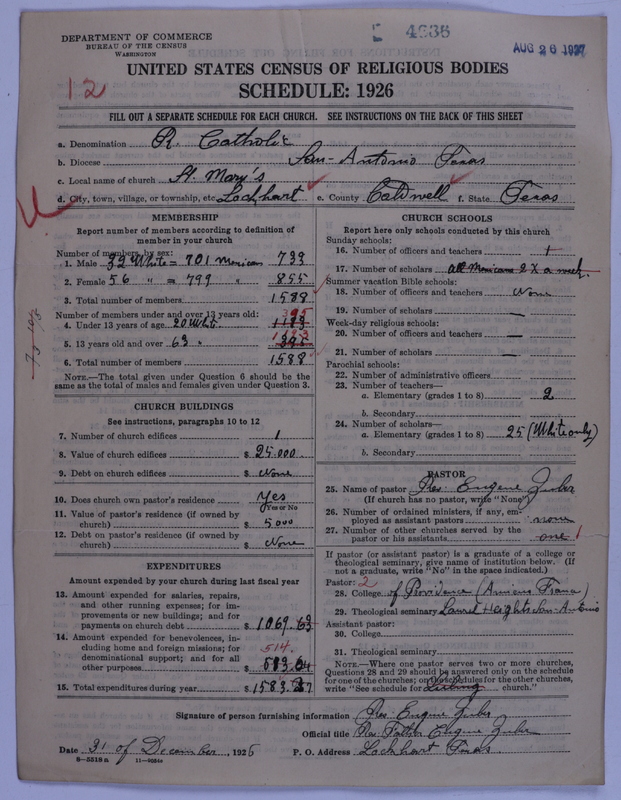 4536
AUG 26 1927
DEPARTMENT OF COMMERCE
BUREAU OF THE CENSUS
WASHINGTON
12
UNITED STATES CENSUS OF RELIGIOUS BODIES
SCHEDULE: 1926
FILL OUT A SEPARATE SCHEDULE FOR EACH CHURCH. SEE INSTRUCTIONS ON THE BACK OF THIS SHEET
a. Denomination R. Catholic
b. Diocese San-Antonio Texas
c. Local name of church St. Mary's
d. City, town, village, or township, etc Lockhart e. County Caldwell f. State Texas
MEMBERSHIP
Report number of members according to definition of
member in your church
Number of members by sex:
1. Male 32 White = 701 Mexicans 733
2. Female 56 " = 799 " 855
3. Total number of members 1588
Number of members under and over 13 years old:
4. Under 13 years of age 20 Whit.
5. 13 years old and over 63 "
6. Total number of members 1588
NOTE.—The total given under Question 6 should be the
same as the total of males and females given under Question 3.
CHURCH BUILDINGS
See instructions, paragraphs 10 to 12
7. Number of church edifices 1
8. Value of church edifices $ 25.000
9. Debt on church edifices $ None
10. Does church own pastor's residence Yes
Yes or No
11. Value of pastor's residence (if owned by
church) $ 5000
12. Debt on pastor's residence (if owned by
church) $ None
EXPENDITURES
Amount expended by your church during last fiscal year
13. Amount expended for salaries, repairs,
and other running expenses; for im-
provements or new buildings; and for
payments on church debt $ 1069.63
14. Amount expended for benevolences, in-
cluding home and foreign missions; for
denominational support; and for all
514.
other purposes $
15. Total expenditures during year $ 1583.
CHURCH SCHOOLS
Report here only schools conducted by this church
Sunday schools:
16. Number of officers and teachers 1
17. Number of scholars all Mexicans 2 X a week.
Summer vacation Bible schools:
18. Number of officers and teachers None
19. Number of scholars —
Week-day religious schools:
20. Number of officers and teachers —
21. Number of scholars —
Parochial schools:
22. Number of administrative officers
23. Number of teachers—
a. Elementary (grades 1 to 8) 2
b. Secondary
24. Number of scholars—
a. Elementary (grades 1 to 8) 25 (White only)
b. Secondary
PASTOR
25. Name of pastor Rev. Eugene
(If church has no pastor, write "None")
26. Number of ordained ministers, if any, em-
ployed as assistant pastors none
27. Number of other churches served by the
pastor or his assistants one 1
If pastor (or assistant pastor) is a graduate of a college or
theological seminary, give name of institution below. (If
not a graduate, write "No" in the space indicated.)
Pastor: 2
28. College of Providence (Amiens
29. Theological seminary Laurel Heights San-Antonio
Assistant pastor:
30. College
31. Theological seminary
NOTE.—Where one pastor serves two or more churches,
Questions 28 and 29 should be answered only on the schedule
for one of the churches; on the schedules for the other churches,
write "See schedule for Luling church."
Signature of person furnishing information Rev. Eugene
Official title Rev. Father Eugene
Date 31 of December, 1926 P. O. Address Lockhart Texas.
8—5518 a